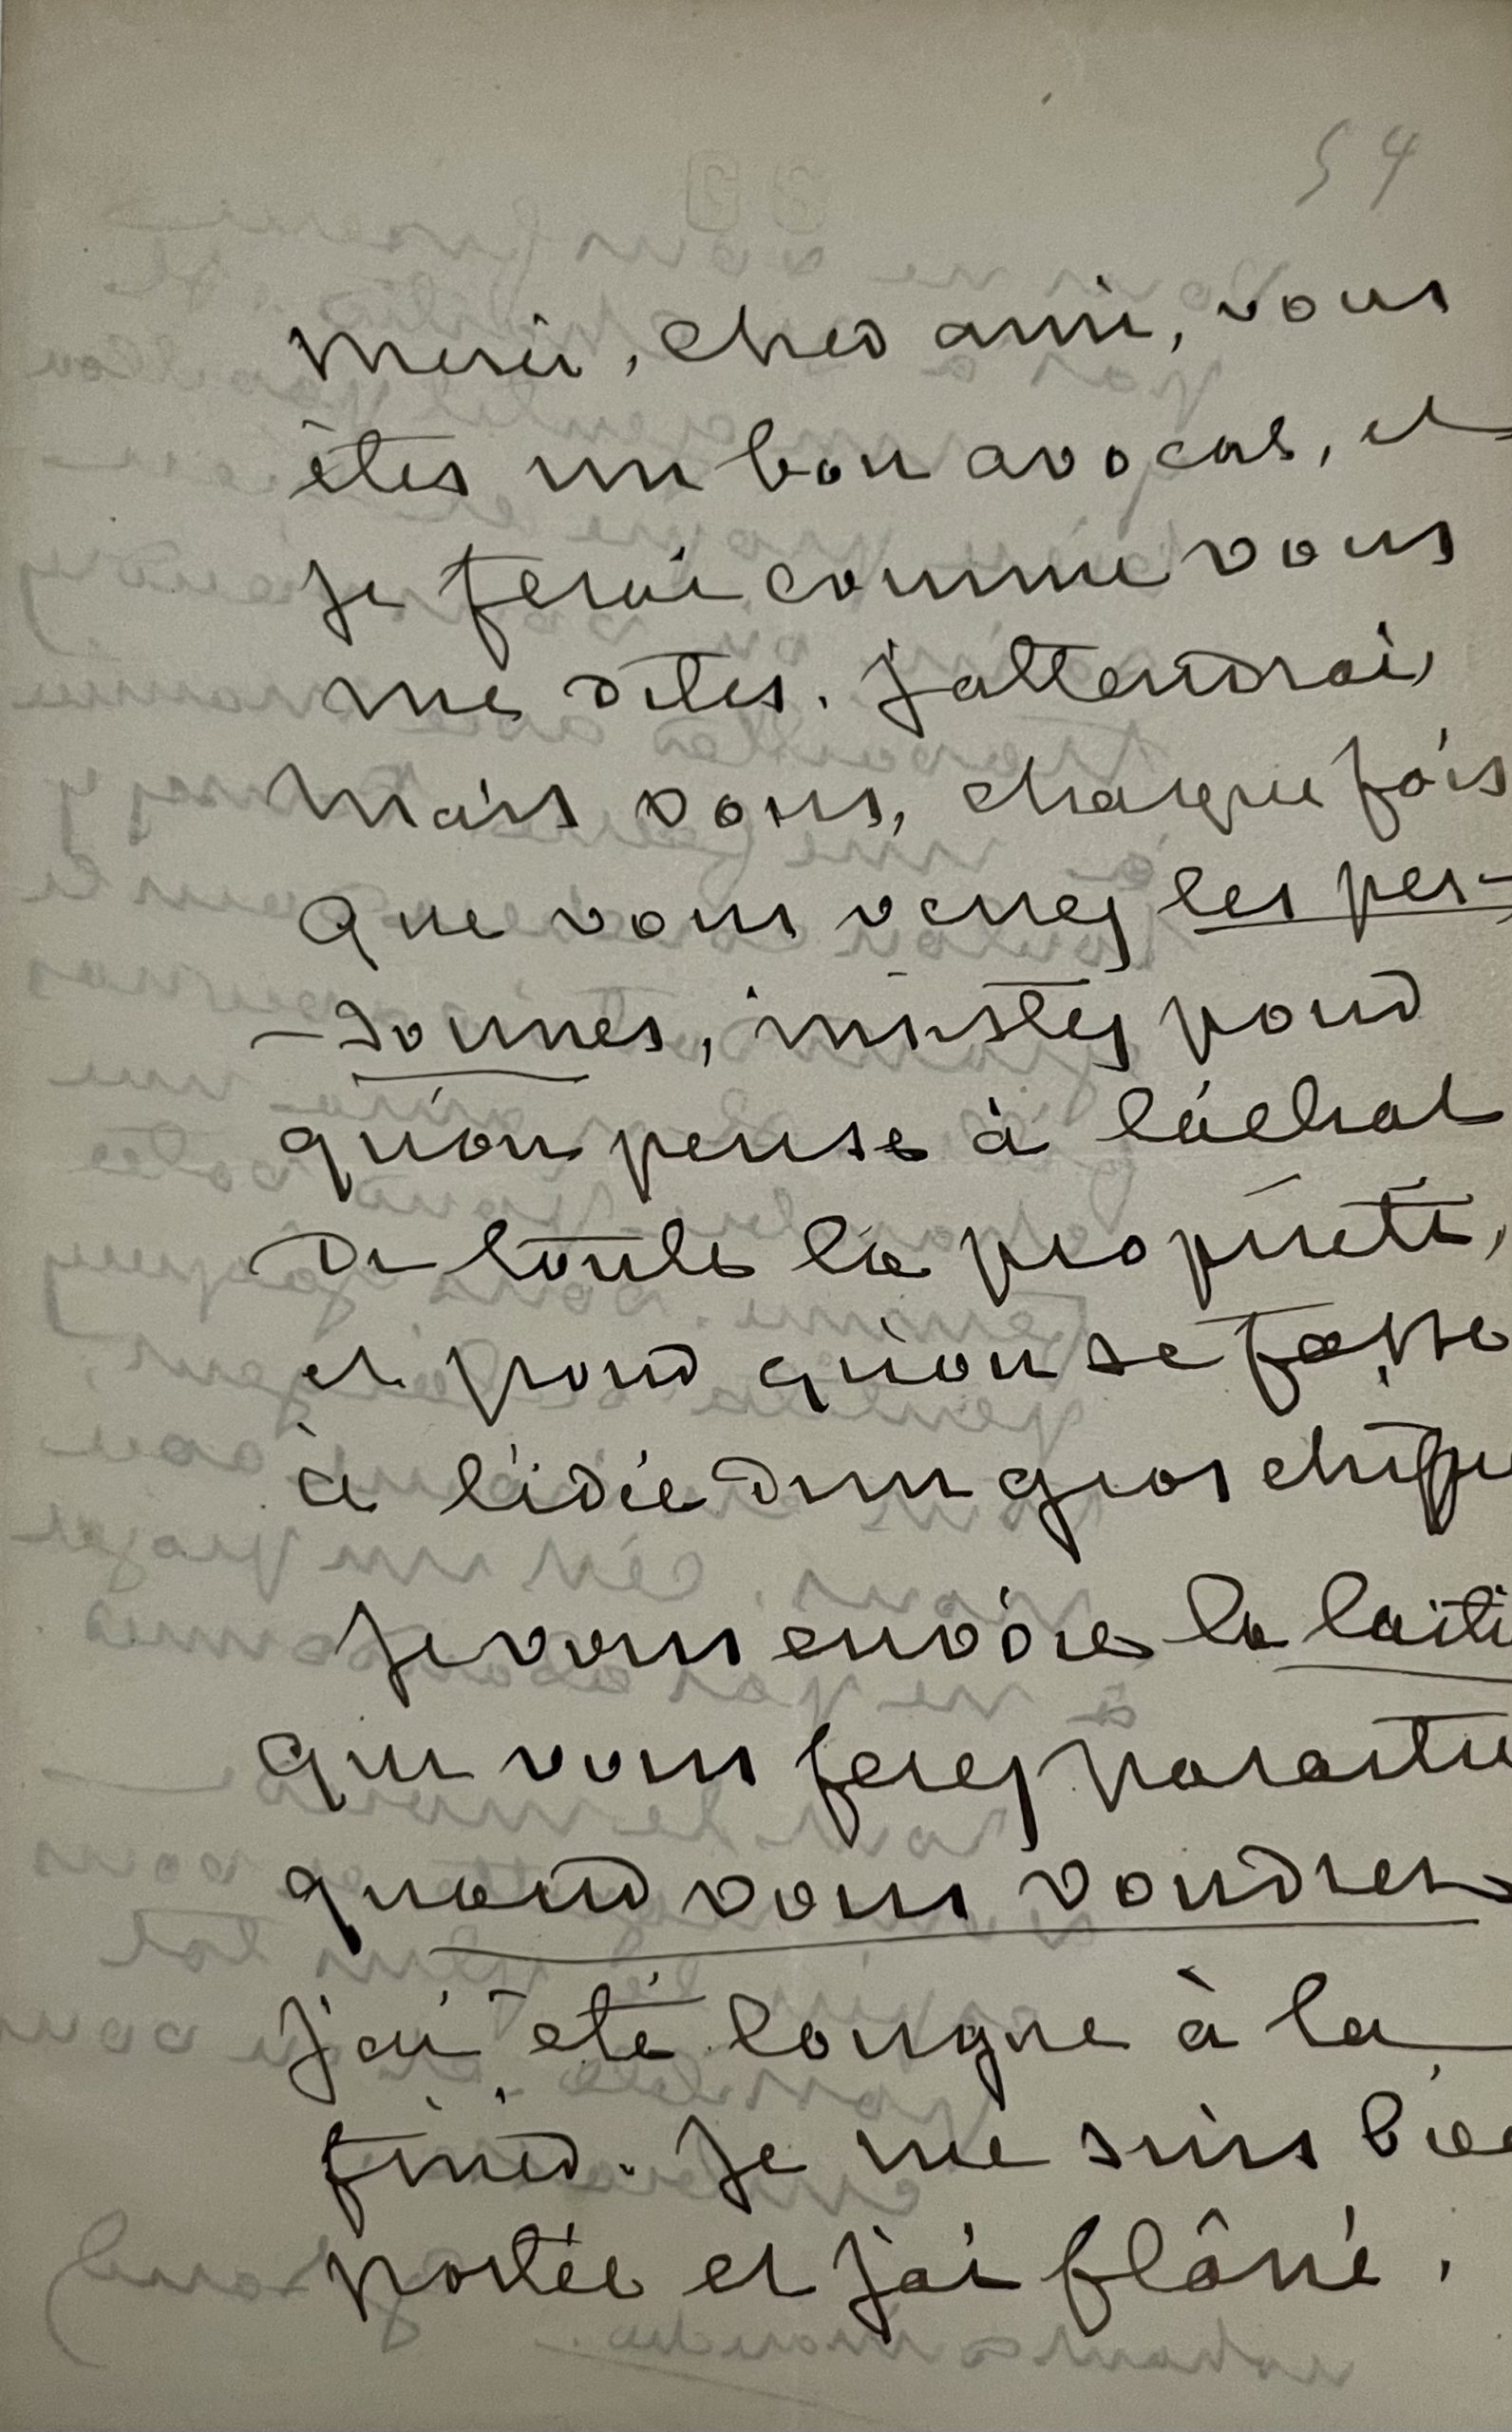 54
merci, cher ami, vous
êtes un bon avocat, et
je ferai comme vous
me dites. j'attendrai,
mais vous, chaque fois
que vous verrez les per-
-sonnes, insistez pour
qu'on pense à l'achat
de toute la propriété,
et pour qu'on se fasse
à l'idée d'un gros chiffre
je vous envoie la laiti
que vous ferez paraitre
quand vous voudrez
j'ai été longue à la
finir. je me suis bie
portée et j'ai flâné.